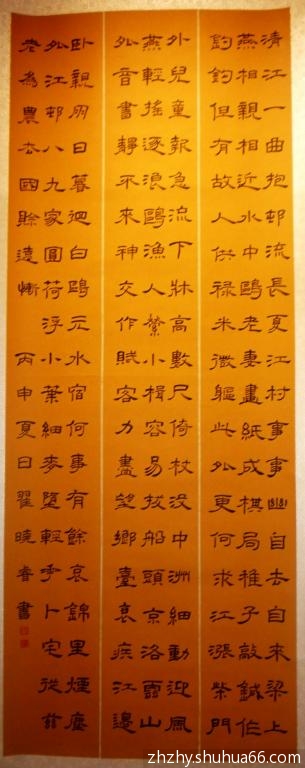 清江一曲抱邨流長夏江村事事幽自去自來梁上
燕相親相近水中鷗老妻畫紙成棋局稚子敲鍼作
釣鉤但有故人供祿米微軀此外更何求江漲柴門
外兒童報急流下牀高數尺倚杖沒中洲細動迎風
燕輕搖逐浪鷗漁人縈小楫容易拔船頭京洛雲山
外音書靜不來神交作賦客力盡望鄉臺衰疾江邊
臥親朋日暮迴白鷗元水宿何事有餘哀錦里煙塵
外江邨八九家圓荷浮小葉細麥墮輕卜宅從茲
老為農去國賒遠慚 丙申夏日翟曉睿書
zhzhy.shuhua66.com